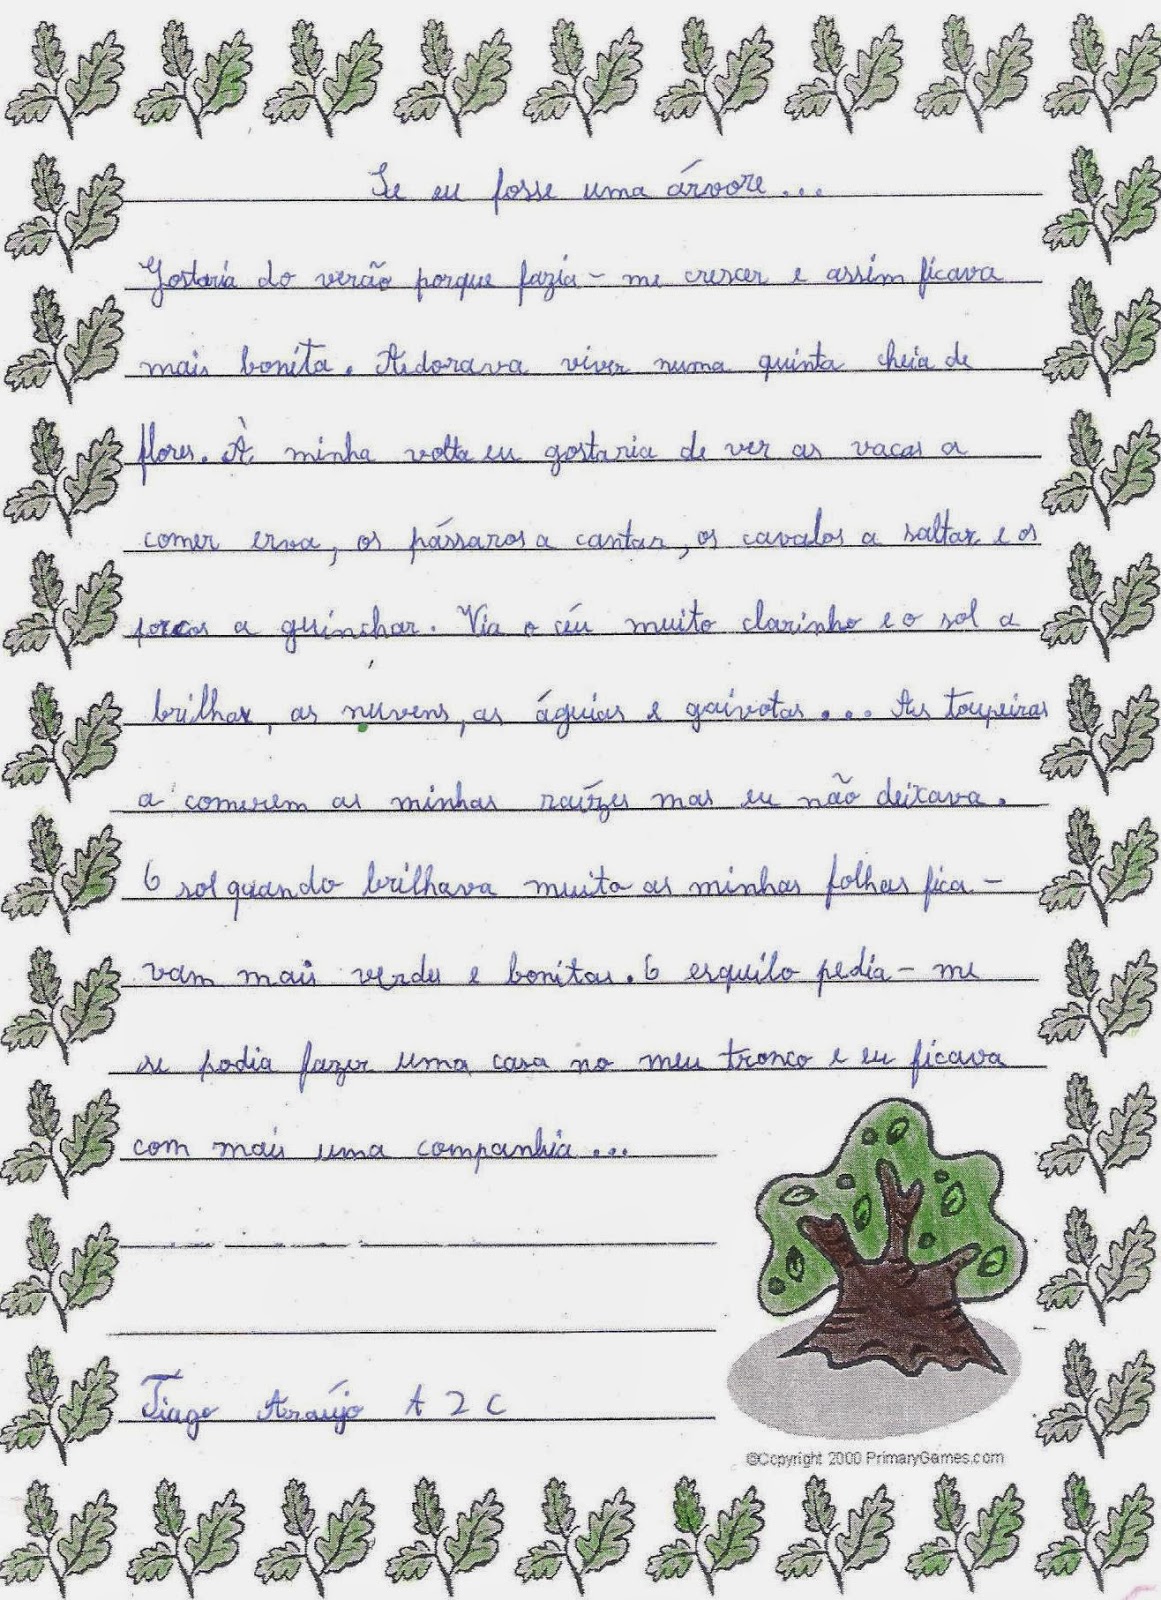 Se eu fosse uma árvore...
Gostaria do verão porque fazia-me crescer e assim ficava
mais bonita. Adorava viver numa quinta cheia de
flores. À minha volta eu gostaria de ver as vacas a
comer erva, os pássaros a cantar, os cavalos a saltar e os
porcos a guinchar. Via o céu muito clarinho e o sol a
brilhar, as nuvens, as águias e gaivotas... As toupeiras
a comerem as minhas raízes mas eu não deixava.
O sol quando brilhava muito as minhas folhas fica-
vam mais verdes e bonitas. O esquilo pedia-me
se podia fazer uma casa no meu tronco e eu ficava
com mais uma companhia...
Tiago Araújo A 2 C
©Copyright 2000 PrimaryGames.com